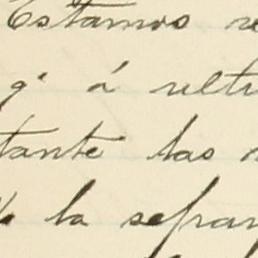 Estamos re
q.e á ultr
tante las
la separa